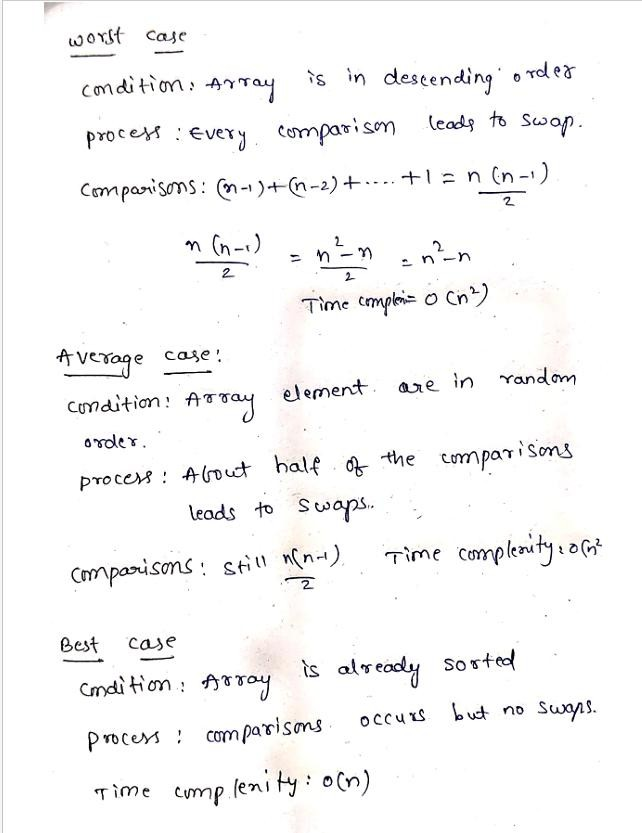 worst case
condition: Array is in descending order
process : Every comparison leads to swap.
comparisons: (n-1)+(n-2)+....+1 = n(n-1)/2
n(n-1)/2 = n²-n/2 = n²-n
Time complexi= O(n²)
Average case:
condition: Array element are in random
order.
process : About half of the comparisons
leads to swaps..
comparisons: still n(n-1)/2 Time complexity: O(n²
Best case
condition: Array is already sorted
process : comparisons occurs but no swaps.
Time complexity: O(n)